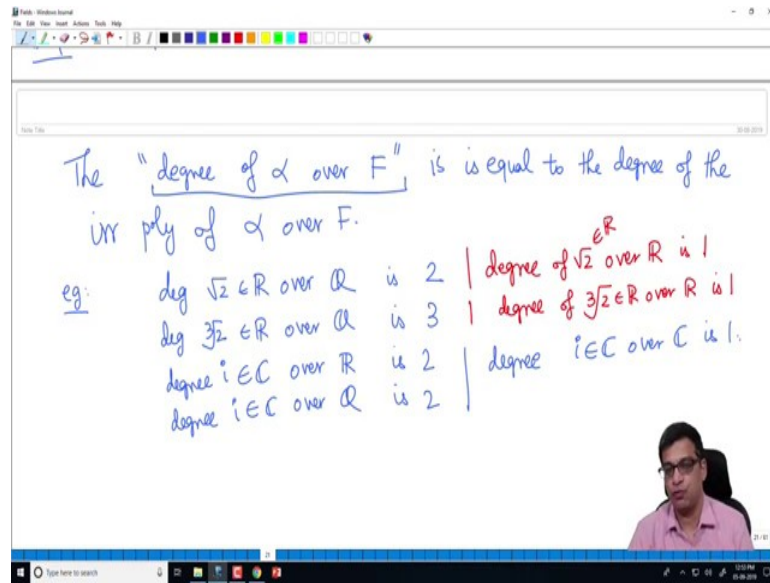 Fields - Windows Journal
File Edit View Insert Actions Tools Help
Note Title
30-08-2019
The "degree of α over F" is is equal to the degree of the
irr poly of α over F.
eg: deg √2 ∈ ℝ over ℚ is 2 | degree of √2 ∈ℝ over ℝ is 1
deg ∛2 ∈ ℝ over ℚ is 3 | degree of ∛2 ∈ ℝ over ℝ is 1
degree i ∈ ℂ over ℝ is 2 | degree i ∈ ℂ over ℂ is 1.
degree i ∈ ℂ over ℚ is 2
21
Type here to search
12:53 PM